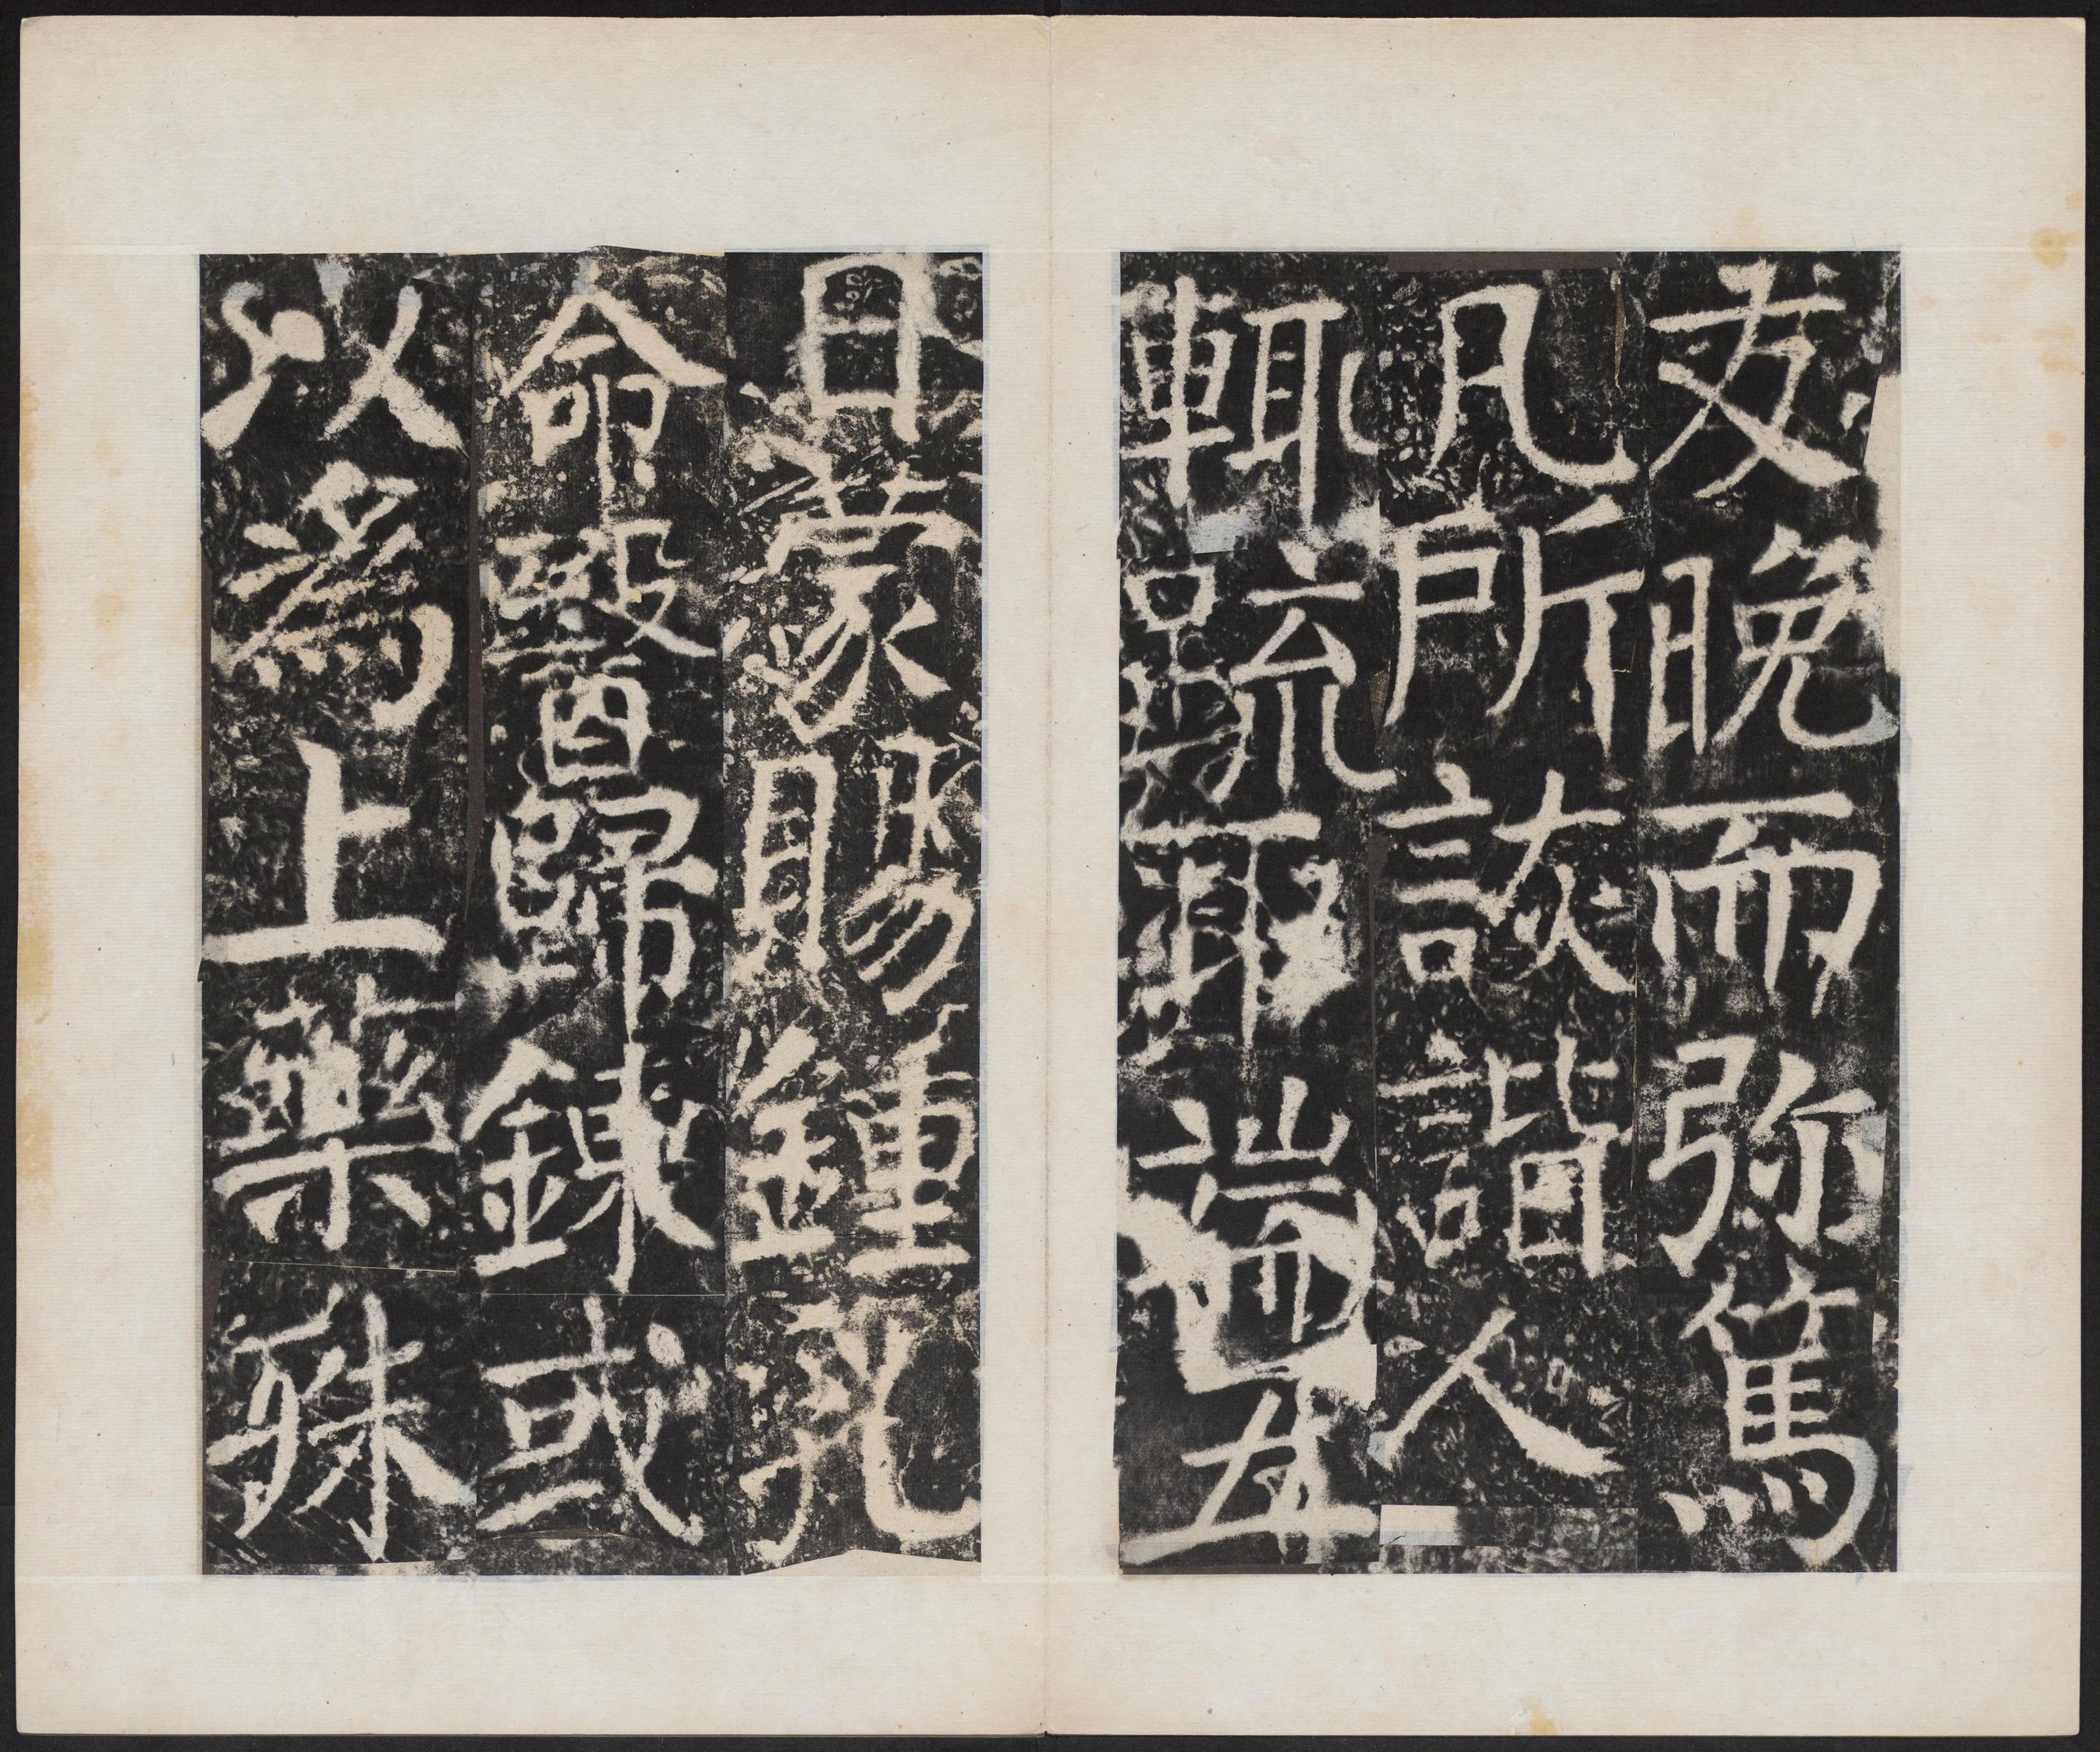 友晚而弥篤
凡所談諧人
輒疏耶耑五
日蒙賜鍾乳
命醫歸鍊或
以為上藥殊